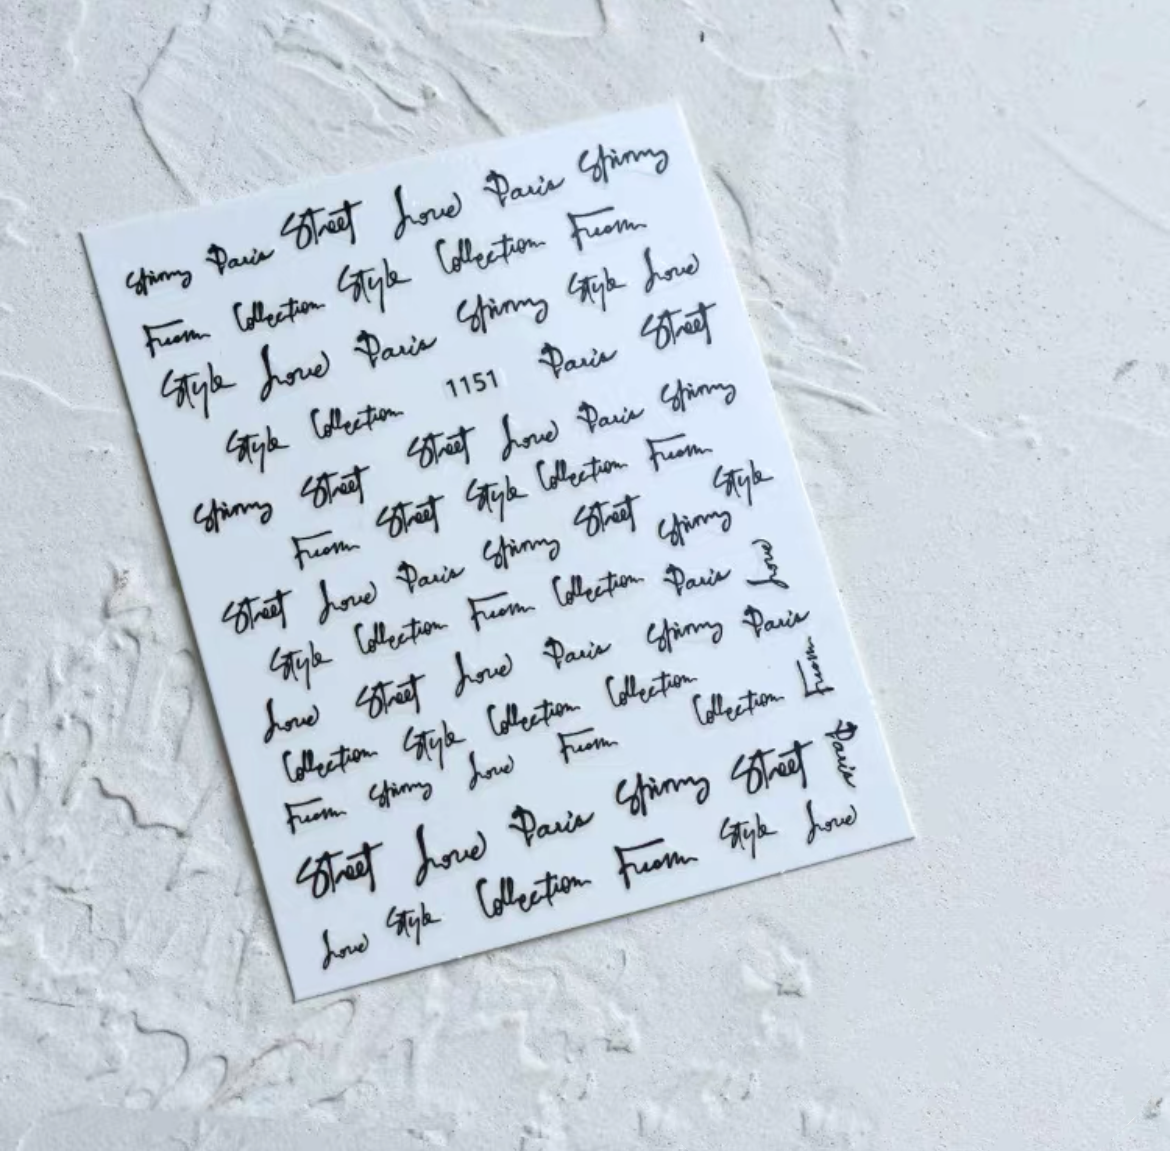 Spinny Paris Street Love Paris Spinny
From Collection Style Collection From
Style Love Paris Spinny Style Love
Style Collection 1151 Paris Street
Spinny Street Street Love Paris Spinny
From Street Style Collection From Style
Street Love Paris Spinny Street Spinny
Style Collection From Collection Paris Love
Love Street Love Paris Spinny Paris
Collection Style Collection Collection Collection From
From Spinny Love From
Street Love Paris Spinny Street Paris
Love Style Collection From Style Love